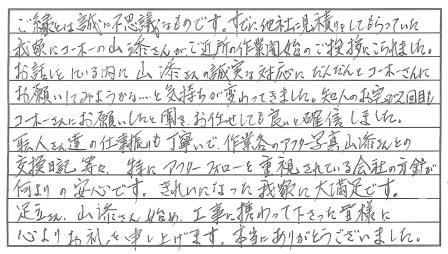 ご縁とは誠に不思議なものです。すでに他社に見積りをしてもらっていた
我家にコーホーの山添さんがご近所の作業開始のご挨拶にこられました。
お話しをしている内に山添さんの誠実な対応にだんだんとコーホーさんに
お願いしてみようかな…と気持ちが変わってきました。知人のお宅が2回目も
コーホーさんにお願いしたと聞き、お任せしても良いと確信しました。
職人さん達の仕事振りも丁寧で、作業各のアフター写真山添さんとの
交換日記等々、特にアフターフォローを重視されている会社の方針が
何よりの安心です。きれいになった我家に大満足です。
足立さん、山添さん始め、工事に携わって下さった皆様に
心よりお礼を申し上げます。本当にありがとうございました。